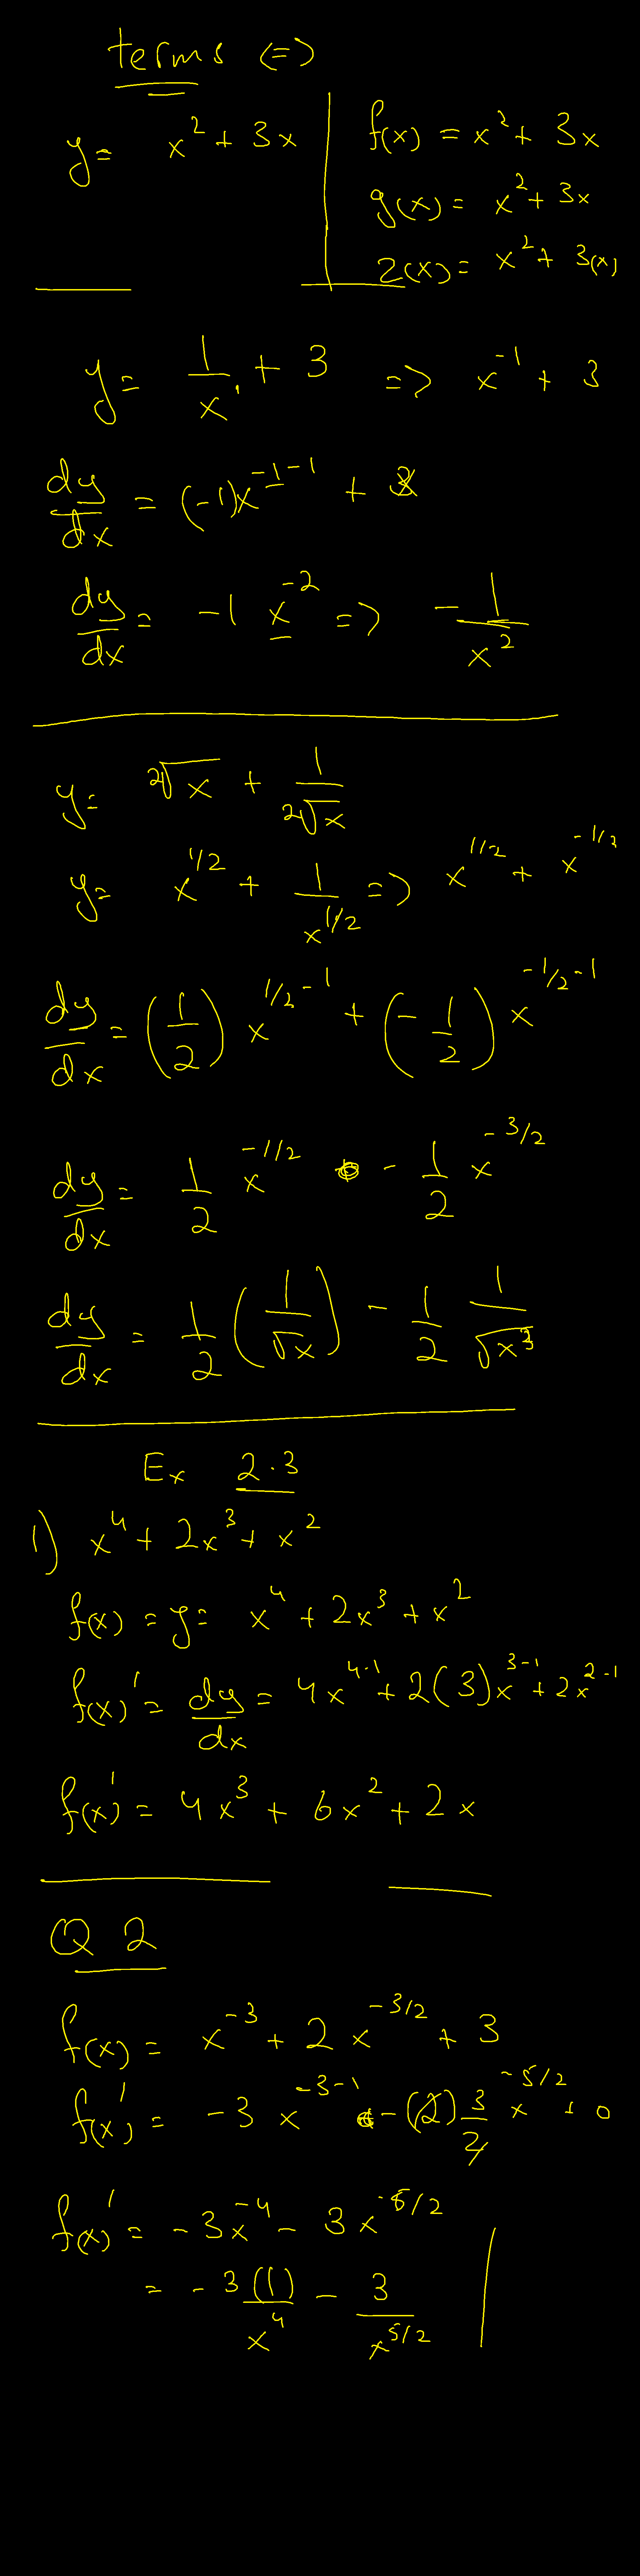 terms =>
y = x² + 3x
f(x) = x² + 3x
g(x) = x² + 3x
z(x) = x² + 3(x)
y = 1/x¹ + 3 => x⁻¹ + 3
dy/dx = (-1)x^(-1-1) +
dy/dx = -1 x⁻² => -1/x²
y = ²√x + 1/²√x
y = x^(1/2) + 1/x^(1/2) => x^(1/2) + x^(-1/2)
dy/dx = (1/2) x^(1/2-1) + (-1/2) x^(-1/2-1)
dy/dx = 1/2 x^(-1/2) - 1/2 x^(-3/2)
dy/dx = 1/2 (1/√x) - 1/2 1/√x³
Ex 2.3
1) x⁴ + 2x³ + x²
f(x) = y = x⁴ + 2x³ + x²
f(x)' = dy/dx = 4x^(4-1) + 2(3)x^(3-1) + 2x^(2-1)
f(x)' = 4x³ + 6x² + 2x
Q 2
f(x) = x⁻³ + 2x^(-3/2) + 3
f(x)' = -3x^(-3-1) - (2) 3/2 x^(-5/2) + 0
f(x)' = -3x⁻⁴ - 3x^(-5/2)
= -3(1)/x⁴ - 3/x^(5/2)